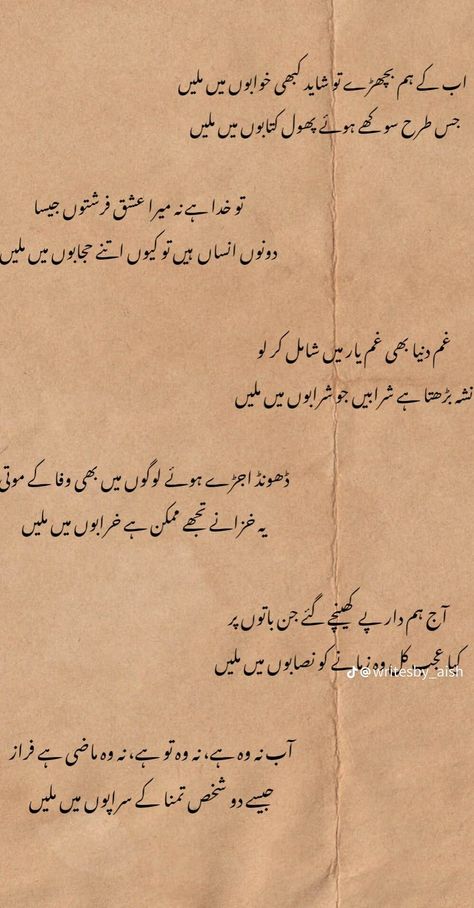 اب کے ہم بچھڑے تو شاید کبھی خوابوں میں ملیں
جس طرح سوکھے ہوئے پھول کتابوں میں ملیں
تو خدا ہے نہ میرا عشق فرشتوں جیسا
دونوں انساں ہیں تو کیوں اتنے حجابوں میں ملیں
غم دنیا بھی غم یار میں شامل کر لو
نشہ بڑھتا ہے شرابیں جو شرابوں میں ملیں
ڈھونڈ اجڑے ہوئے لوگوں میں بھی وفا کے موتی
یہ خزانے تجھے ممکن ہے خرابوں میں ملیں
آج ہم دار پے کھینچے گئے جن باتوں پر
کیا عجب کل وہ زمانے کو نصابوں میں ملیں
@writesby_aish
آب نہ وہ ہے، نہ وہ تو ہے، نہ وہ ماضی ہے فراز
جیسے دو شخص تمنا کے سراپوں میں ملیں